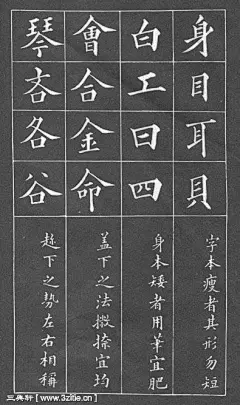 身目耳貝
字本瘦者其形勿短
白工曰四
身本矮者用筆宜肥
會合金命
蓋下之法撇捺宜均
琴吝各谷
趁下之勢左右相稱
三典轩【www.3zitie.cn】